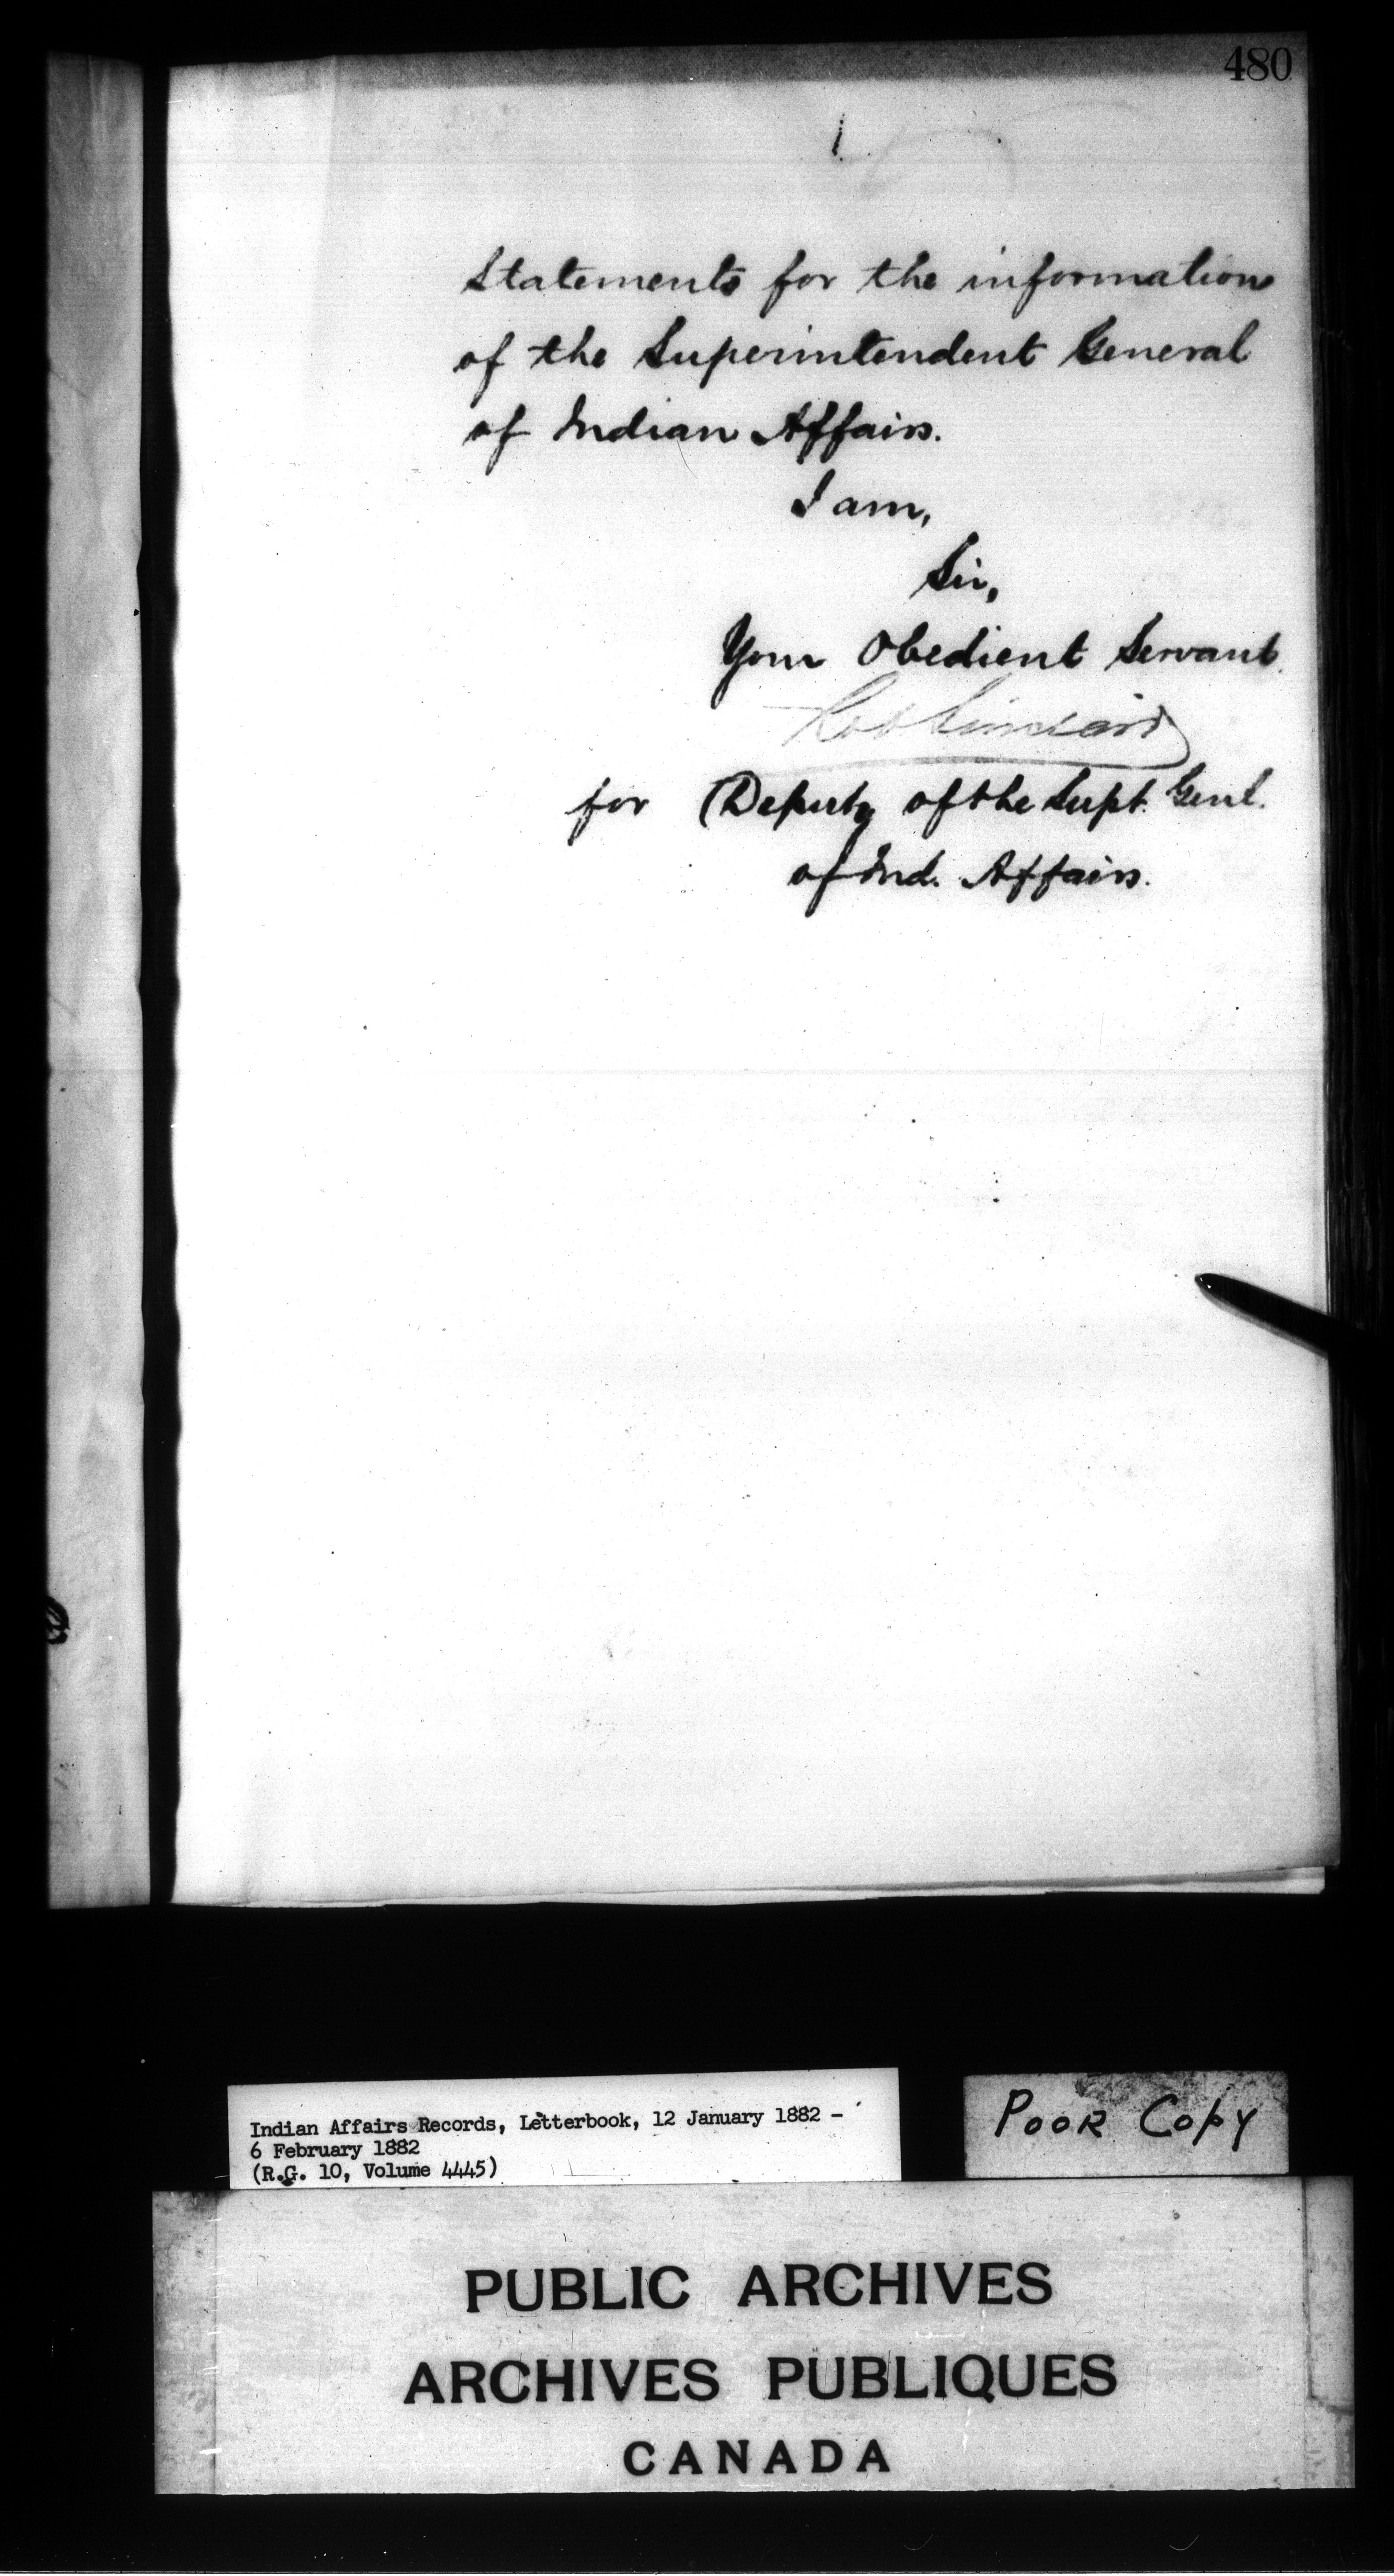 480
Statements for the information
of the Superintendent General
of Indian Affairs.
I am,
Sir,
Your Obedient Servant
Rob Sinclair
for Deputy of the Supt. Genl.
of Ind. Affairs.
Indian Affairs Records, Letterbook, 12 January 1882 -
6 February 1882
(R.G. 10, Volume 4445)
POOR COPY
PUBLIC ARCHIVES
ARCHIVES PUBLIQUES
CANADA